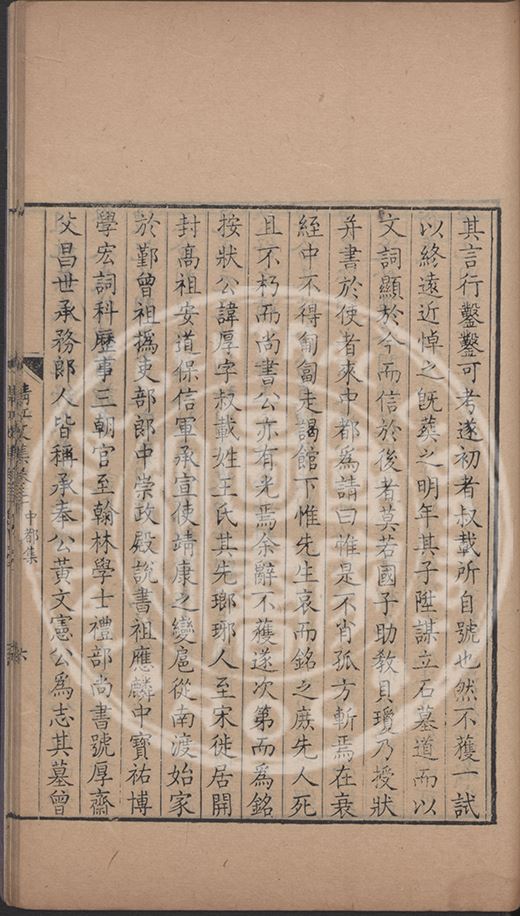 其言行鑿鑿可考遂初者叔載所自號也然不獲一試
以終遠近悼之旣葬之明年其子陞謀立石墓道而以
文詞顯於今而信於後者莫若國子助教貝瓊乃授狀
并書於使者來中都爲請曰惟是不肖孤方斬焉在衰
絰中不得匍匐走謁館下惟先生哀而銘之庶先人死
且不朽而尚書公亦有光焉余辭不獲遂次第而爲銘
按狀公諱厚字叔載姓王氏其先瑯琊人至宋徙居開
封高祖安道保信軍承宣使靖康之變扈從南渡始家
於鄞曾祖撝吏部郎中崇政殿說書祖應麟中寶祐博
學宏詞科歷事三朝官至翰林學士禮部尚書號厚齋
父昌世承務郎人皆稱承奉公黃文憲公爲志其墓曾
清江文集卷三十
中都集
六